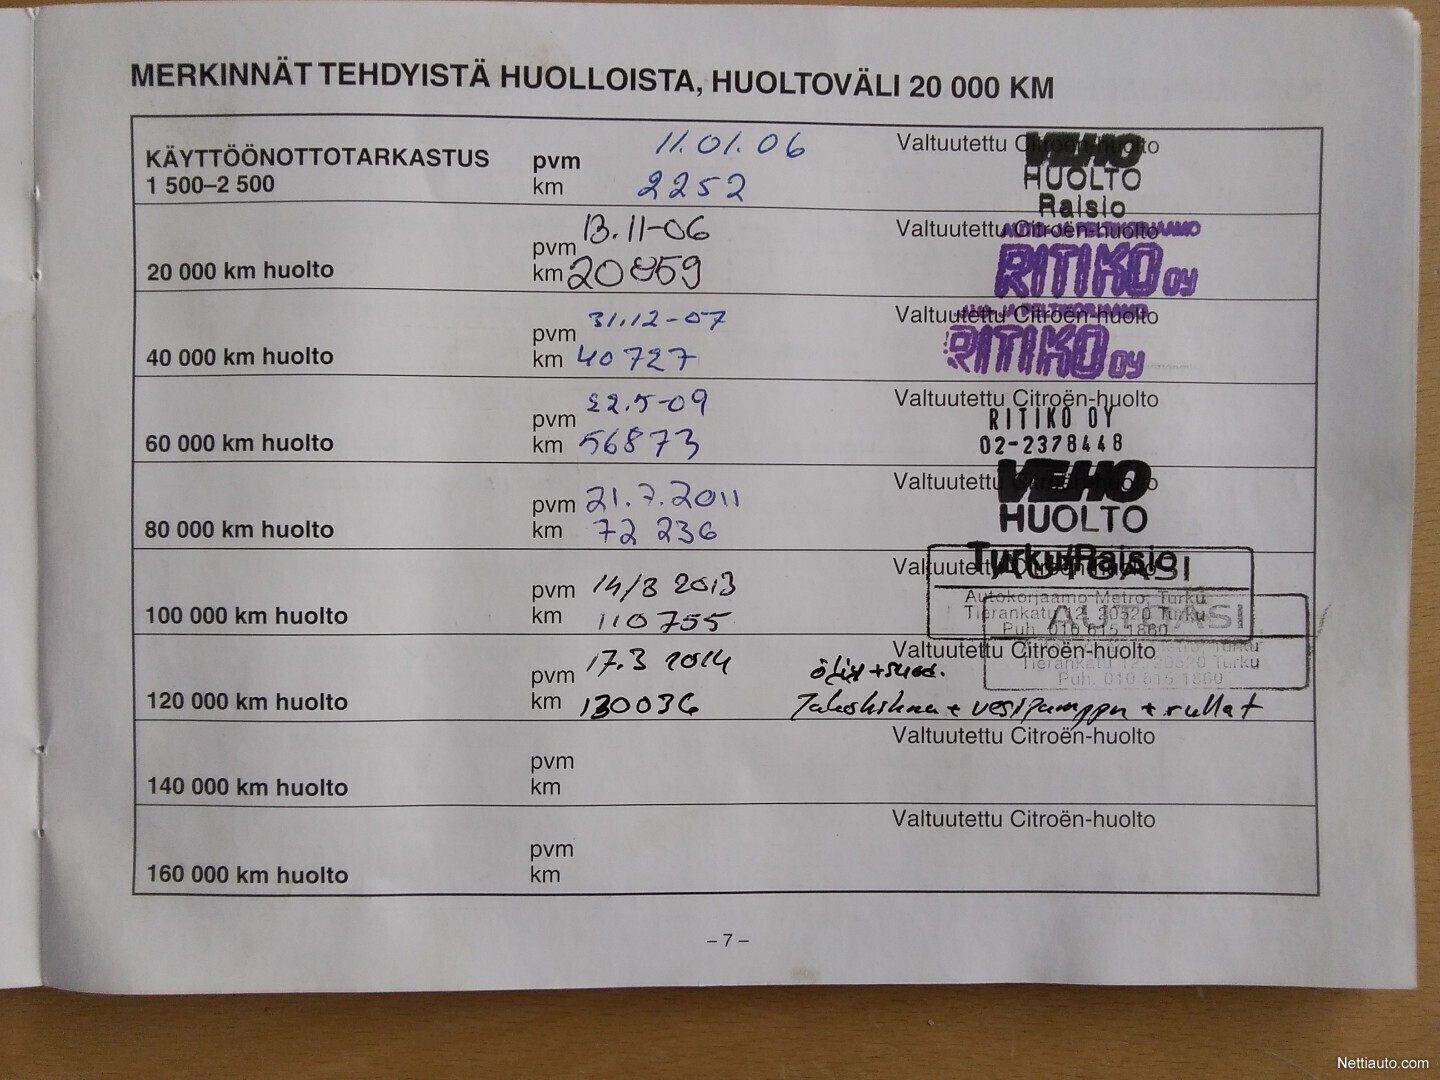 MERKINNÄT TEHDYISTÄ HUOLLOISTA, HUOLTOVÄLI 20 000 KM
KÄYTTÖÖNOTTOTARKASTUS
1 500–2 500
pvm 11.01.06
km 2252
Valtuutettu Citroën-huolto
VEHO
HUOLTO
Raisio
20 000 km huolto
pvm 13.11-06
km 20859
Valtuutettu Citroën-huolto
RITIKO OY
40 000 km huolto
pvm 31.12-07
km 40727
Valtuutettu Citroën-huolto
RITIKO OY
60 000 km huolto
pvm 22.5-09
km 56873
Valtuutettu Citroën-huolto
RITIKO OY
02-2378448
80 000 km huolto
pvm 21.7.2011
km 72 236
Valtuutettu Citroën-huolto
VEHO
HUOLTO
Turku/Raisio
100 000 km huolto
pvm 14/3 2013
km 110755
Valtuutettu Citroën-huolto
AUTOASI
Autokorjaamo Metro, Turku
Tierankatu 12, 20520 Turku
Puh. 010 615 1860
120 000 km huolto
pvm 17.3 2014
km 130036
Valtuutettu Citroën-huolto
AUTOASI
Tierankatu 12, 20520 Turku
Puh. 010 615 1860
öljy + suod.
Jakohihna + vesipumppu + rullat
140 000 km huolto
pvm
km
Valtuutettu Citroën-huolto
160 000 km huolto
pvm
km
Valtuutettu Citroën-huolto
– 7 –
Nettiauto.com